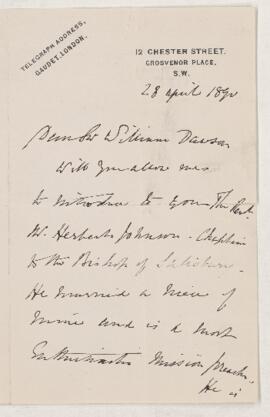 TELEGRAPH ADDRESS,
GAUDET, LONDON.
12 CHESTER STREET.
GROSVENOR PLACE,
S.W.
28 April 1890
Dear Sir William Dawson
Will you allow me
to introduce to you The Revd
Mr. Herbert Johnson - Chaplain
to the Bishop of Salisbury.
He married a niece of
mine and is a most
Enthusiastic Mission preacher.
He is